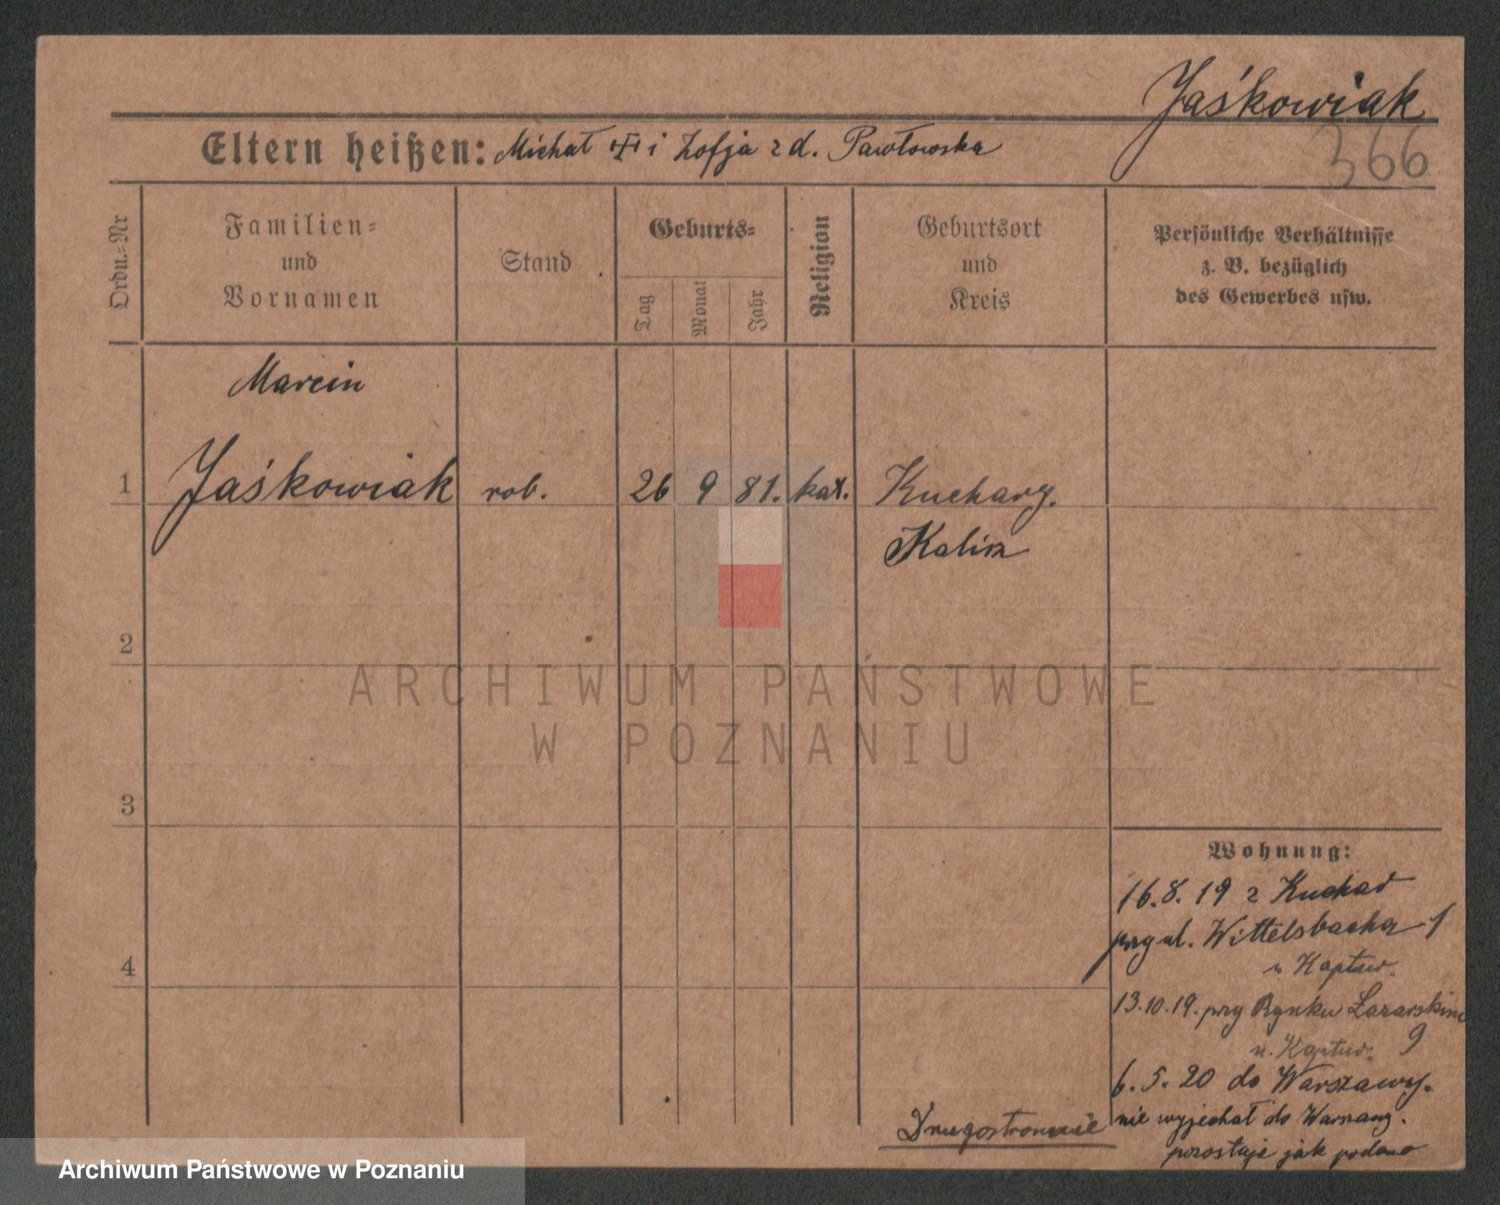 Jaśkowiak
366
Eltern heißen: Michał i Zofja z d. Pawłowska
Ordn.-Nr
Familien-
und
Vornamen
Stand
Geburts-
Tag
Monat
Jahr
Religion
Geburtsort
und
Kreis
Persönliche Verhältnisse
z. B. bezüglich
des Gewerbes usw.
Marcin
1 Jaśkowiak rob. 26 9 81. kat. Kucharz.
Kalisz
2
ARCHIWUM PAŃSTWOWE
W POZNANIU
3
Wohnung:
16.8.19 z Kuchar
przy ul. Wittelsbacha 1
4
u Kaptur.
13.10.19. przy Rynku Łazarskim
9
u. Kaptur.
6.5.20 do Warszawy.
nie wyjechał do Warszawy.
Drugostronnie
pozostaje jak podano
Archiwum Państwowe w Poznaniu